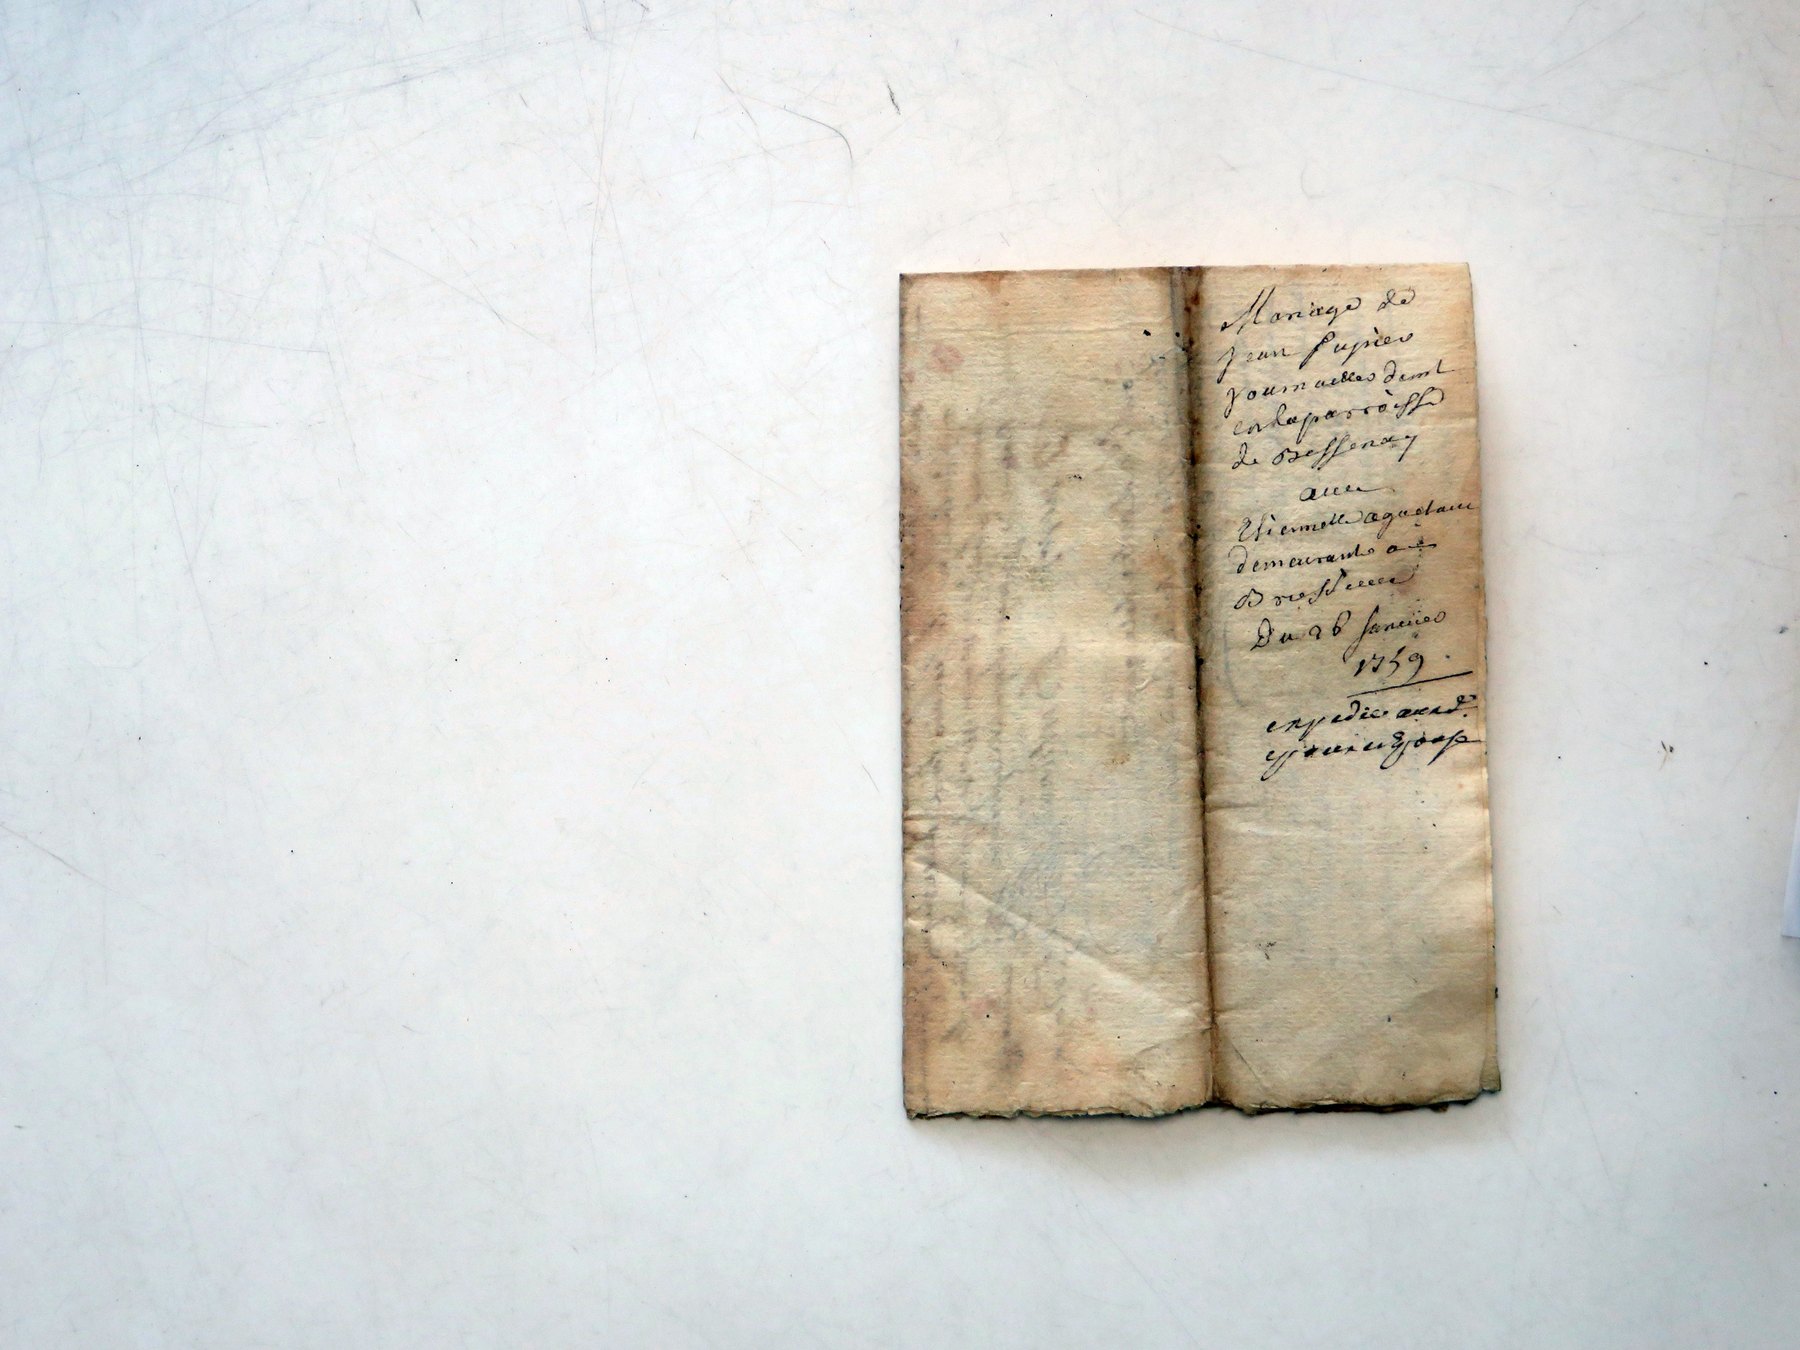 Mariage de
Jean pupier
journallier demt
en la parroisse
de Bessenay
avec
Etiennette aguetant
demeurante a
Brussieu
Du 26 janvier
1759
expedié aud.